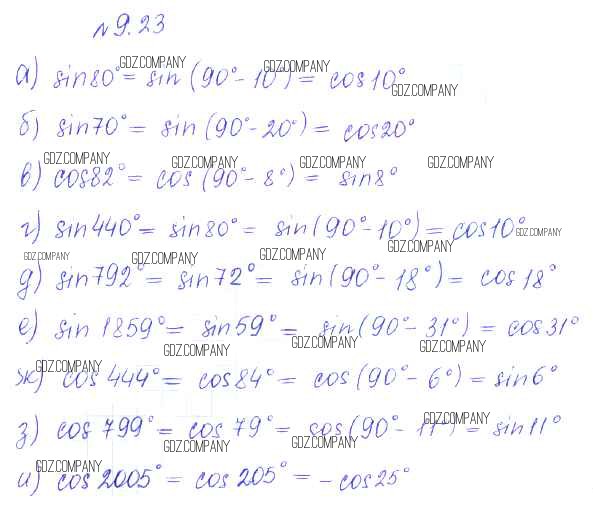 №9.23
а) sin80° = sin(90°-10°) = cos10°
б) sin70° = sin(90°-20°) = cos20°
в) cos82° = cos(90°-8°) = sin8°
г) sin440° = sin80° = sin(90°-10°) = cos10°
д) sin792° = sin72° = sin(90°-18°) = cos18°
е) sin1859° = sin59° = sin(90°-31°) = cos31°
ж) cos444° = cos84° = cos(90°-6°) = sin6°
з) cos799° = cos79° = cos(90°-11°) = sin11°
и) cos2005° = cos205° = -cos25°
GDZ.COMPANY GDZ.COMPANY
GDZ.COMPANY
GDZ.COMPANY GDZ.COMPANY GDZ.COMPANY GDZ.COMPANY
GDZ.COMPANY
GDZ.COMPANY GDZ.COMPANY GDZ.COMPANY GDZ.COMPANY
GDZ.COMPANY GDZ.COMPANY GDZ.COMPANY
GDZ.COMPANY
GDZ.COMPANY
GDZ.COMPANY GDZ.COMPANY
GDZ.COMPANY